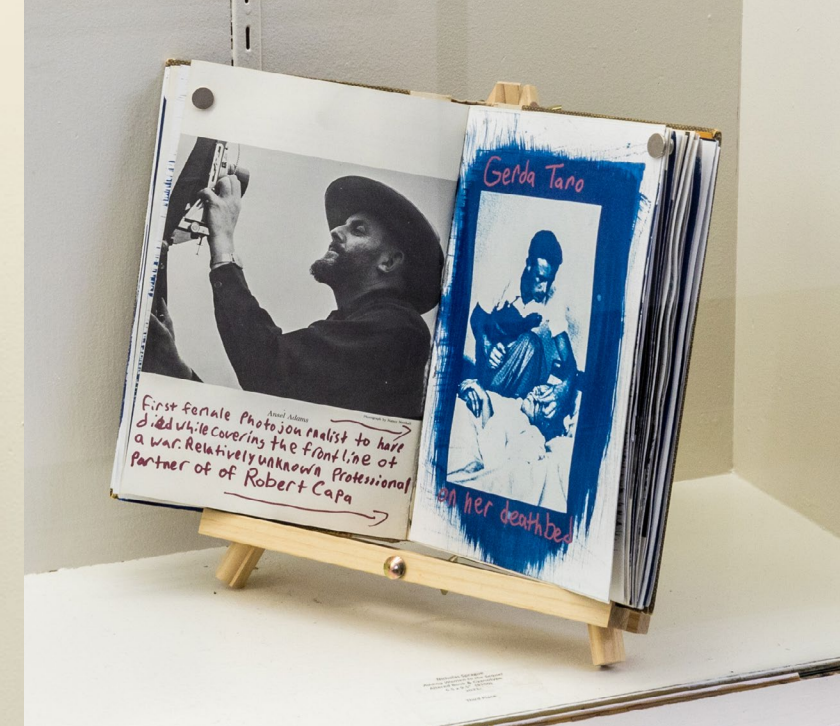 Ansel Adams
First female Photojournalist to have
died while covering the front line of
a war. Relatively unknown Professional
Partner of of Robert Capa
Gerda Taro
on her deathbed